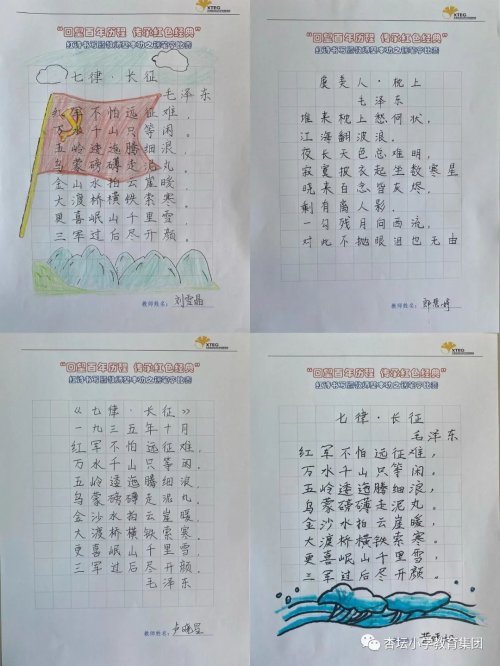 XTEG
"回望百年历程 传承红色经典"
七律·长征
毛泽东
红军不怕远征难，
万水千山只等闲。
五岭逶迤腾细浪，
乌蒙磅礴走泥丸。
金沙水拍云崖暖，
大渡桥横铁索寒。
更喜岷山千里雪，
三军过后尽开颜。
教师姓名：刘雪晶
XTEG
"回望百年历程 传承红色经典"
虞美人·枕上
毛泽东
堆来枕上愁何状，
江海翻波浪。
夜长天色总难明，
寂寞披衣起坐数寒星
晓来百念皆灰烬，
剩有离人影。
一勾残月向西流，
对此不抛眼泪也无由
教师姓名：
XTEG
"回望百年历程 传承红色经典"
《七律·长征》
一九三五年十月
红军不怕远征难，
万水千山只等闲。
五岭逶迤腾细浪，
乌蒙磅礴走泥丸。
金沙水拍云崖暖，
大渡桥横铁索寒。
更喜岷山千里雪，
三军过后尽开颜。
毛泽东
教师姓名：卢晓星
XTEG
"回望百年历程 传承红色经典"
七律·长征
毛泽东
红军不怕远征难，
万水千山只等闲。
五岭逶迤腾细浪，
乌蒙磅礴走泥丸。
金沙水拍云崖暖，
大渡桥横铁索寒。
更喜岷山千里雪，
三军过后尽开颜。
杏坛小学教育集团